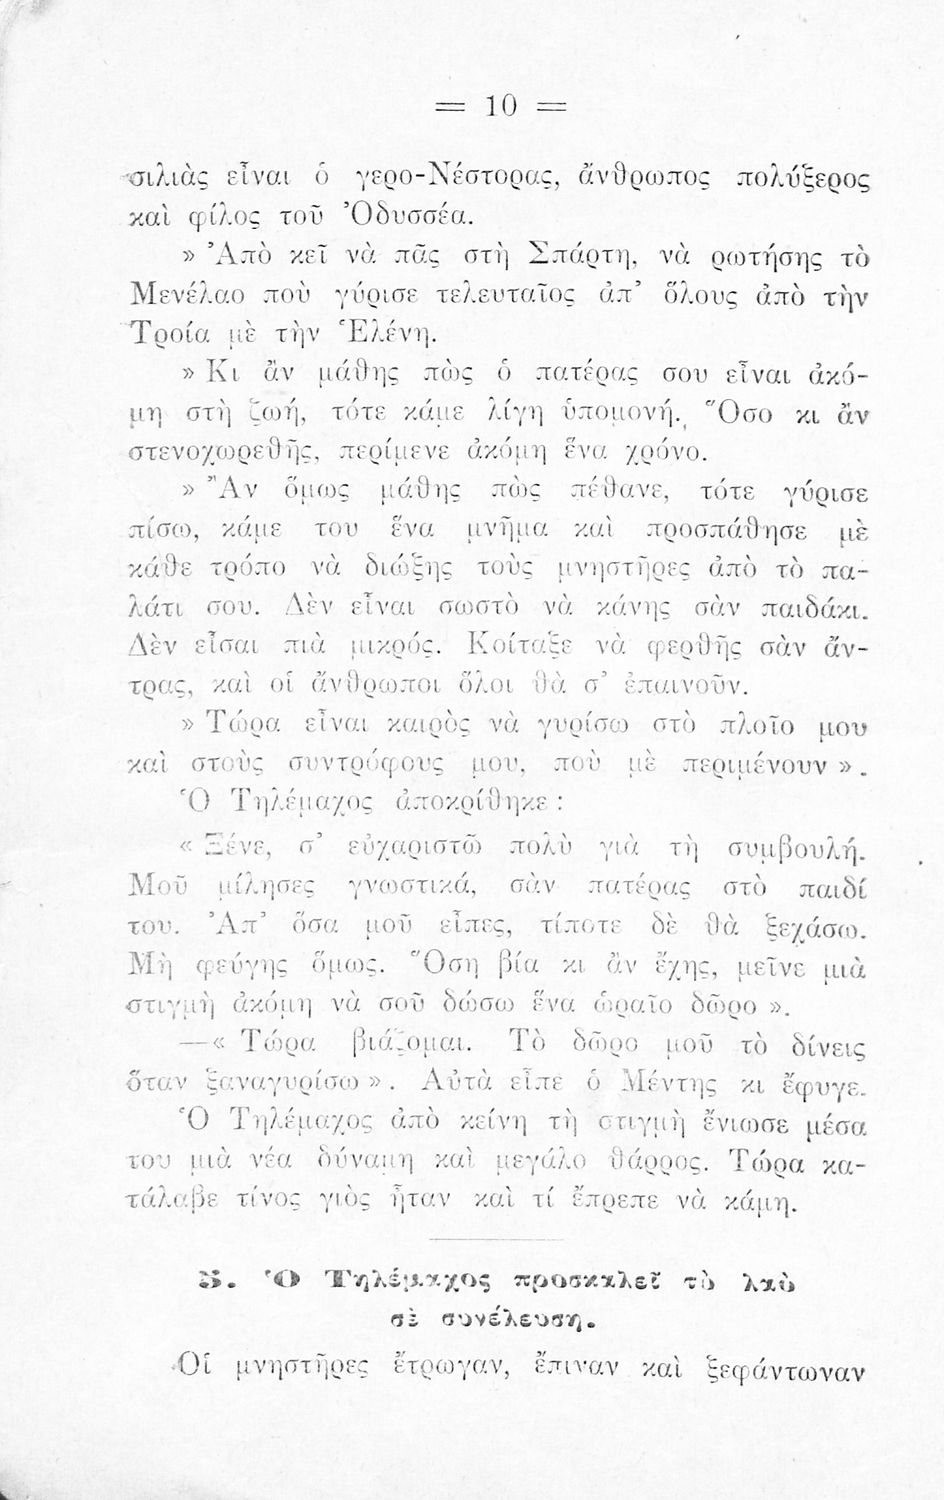 = 10 =
σιλιὰς εἶναι ὁ γερο-Νέστορας, ἄνθρωπος πολύξερος
καὶ φίλος τοῦ Ὀδυσσέα.
» Ἀπὸ κεῖ νὰ πᾶς στὴ Σπάρτη, νὰ ρωτήσης τὸ
Μενέλαο ποὺ γύρισε τελευταῖος ἀπ’ ὅλους ἀπὸ τὴν
Τροία μὲ τὴν Ἑλένη.
» Κι ἂν μάθης πὼς ὁ πατέρας σου εἶναι ἀκό-
μη στὴ ζωή, τότε κάμε λίγη ὑπομονή. Ὅσο κι ἂν
στενοχωρεθῆς, περίμενε ἀκόμη ἕνα χρόνο.
» Ἂν ὅμως μάθης πὼς πέθανε, τότε γύρισε
πίσω, κάμε του ἕνα μνῆμα καὶ προσπάθησε μὲ
κάθε τρόπο νὰ διώξης τοὺς μνηστῆρες ἀπὸ τὸ πα-
λάτι σου. Δὲν εἶναι σωστὸ νὰ κάνης σὰν παιδάκι.
Δὲν εἶσαι πιὰ μικρός. Κοίταξε νὰ φερθῆς σὰν ἄν-
τρας, καὶ οἱ ἄνθρωποι ὅλοι θὰ σ’ ἐπαινοῦν.
» Τώρα εἶναι καιρὸς νὰ γυρίσω στὸ πλοῖο μου
καὶ στοὺς συντρόφους μου, ποὺ μὲ περιμένουν ».
Ὁ Τηλέμαχος ἀποκρίθηκε :
« Ξένε, σ’ εὐχαριστῶ πολὺ γιὰ τὴ συμβουλή.
Μοῦ μίλησες γνωστικά, σὰν πατέρας στὸ παιδί
του. Ἀπ’ ὅσα μοῦ εἶπες, τίποτε δὲ θὰ ξεχάσω.
Μὴ φεύγης ὅμως. Ὅση βία κι ἂν ἔχης, μεῖνε μιὰ
στιγμὴ ἀκόμη νὰ σοῦ δώσω ἕνα ὡραῖο δῶρο ».
—« Τώρα βιάζομαι. Τὸ δῶρο μοῦ τὸ δίνεις
ὅταν ξαναγυρίσω ». Αὐτὰ εἶπε ὁ Μέντης κι ἔφυγε.
Ὁ Τηλέμαχος ἀπὸ κείνη τὴ στιγμὴ ἔνιωσε μέσα
του μιὰ νέα δύναμη καὶ μεγάλο θάρρος. Τώρα κα-
τάλαβε τίνος γιὸς ἦταν καὶ τί ἔπρεπε νὰ κάμη.
5. Ὁ Τηλέμαχος προσκαλεῖ τὸ λαὸ
σὲ συνέλευση.
Οἱ μνηστῆρες ἔτρωγαν, ἔπιναν καὶ ξεφάντωναν